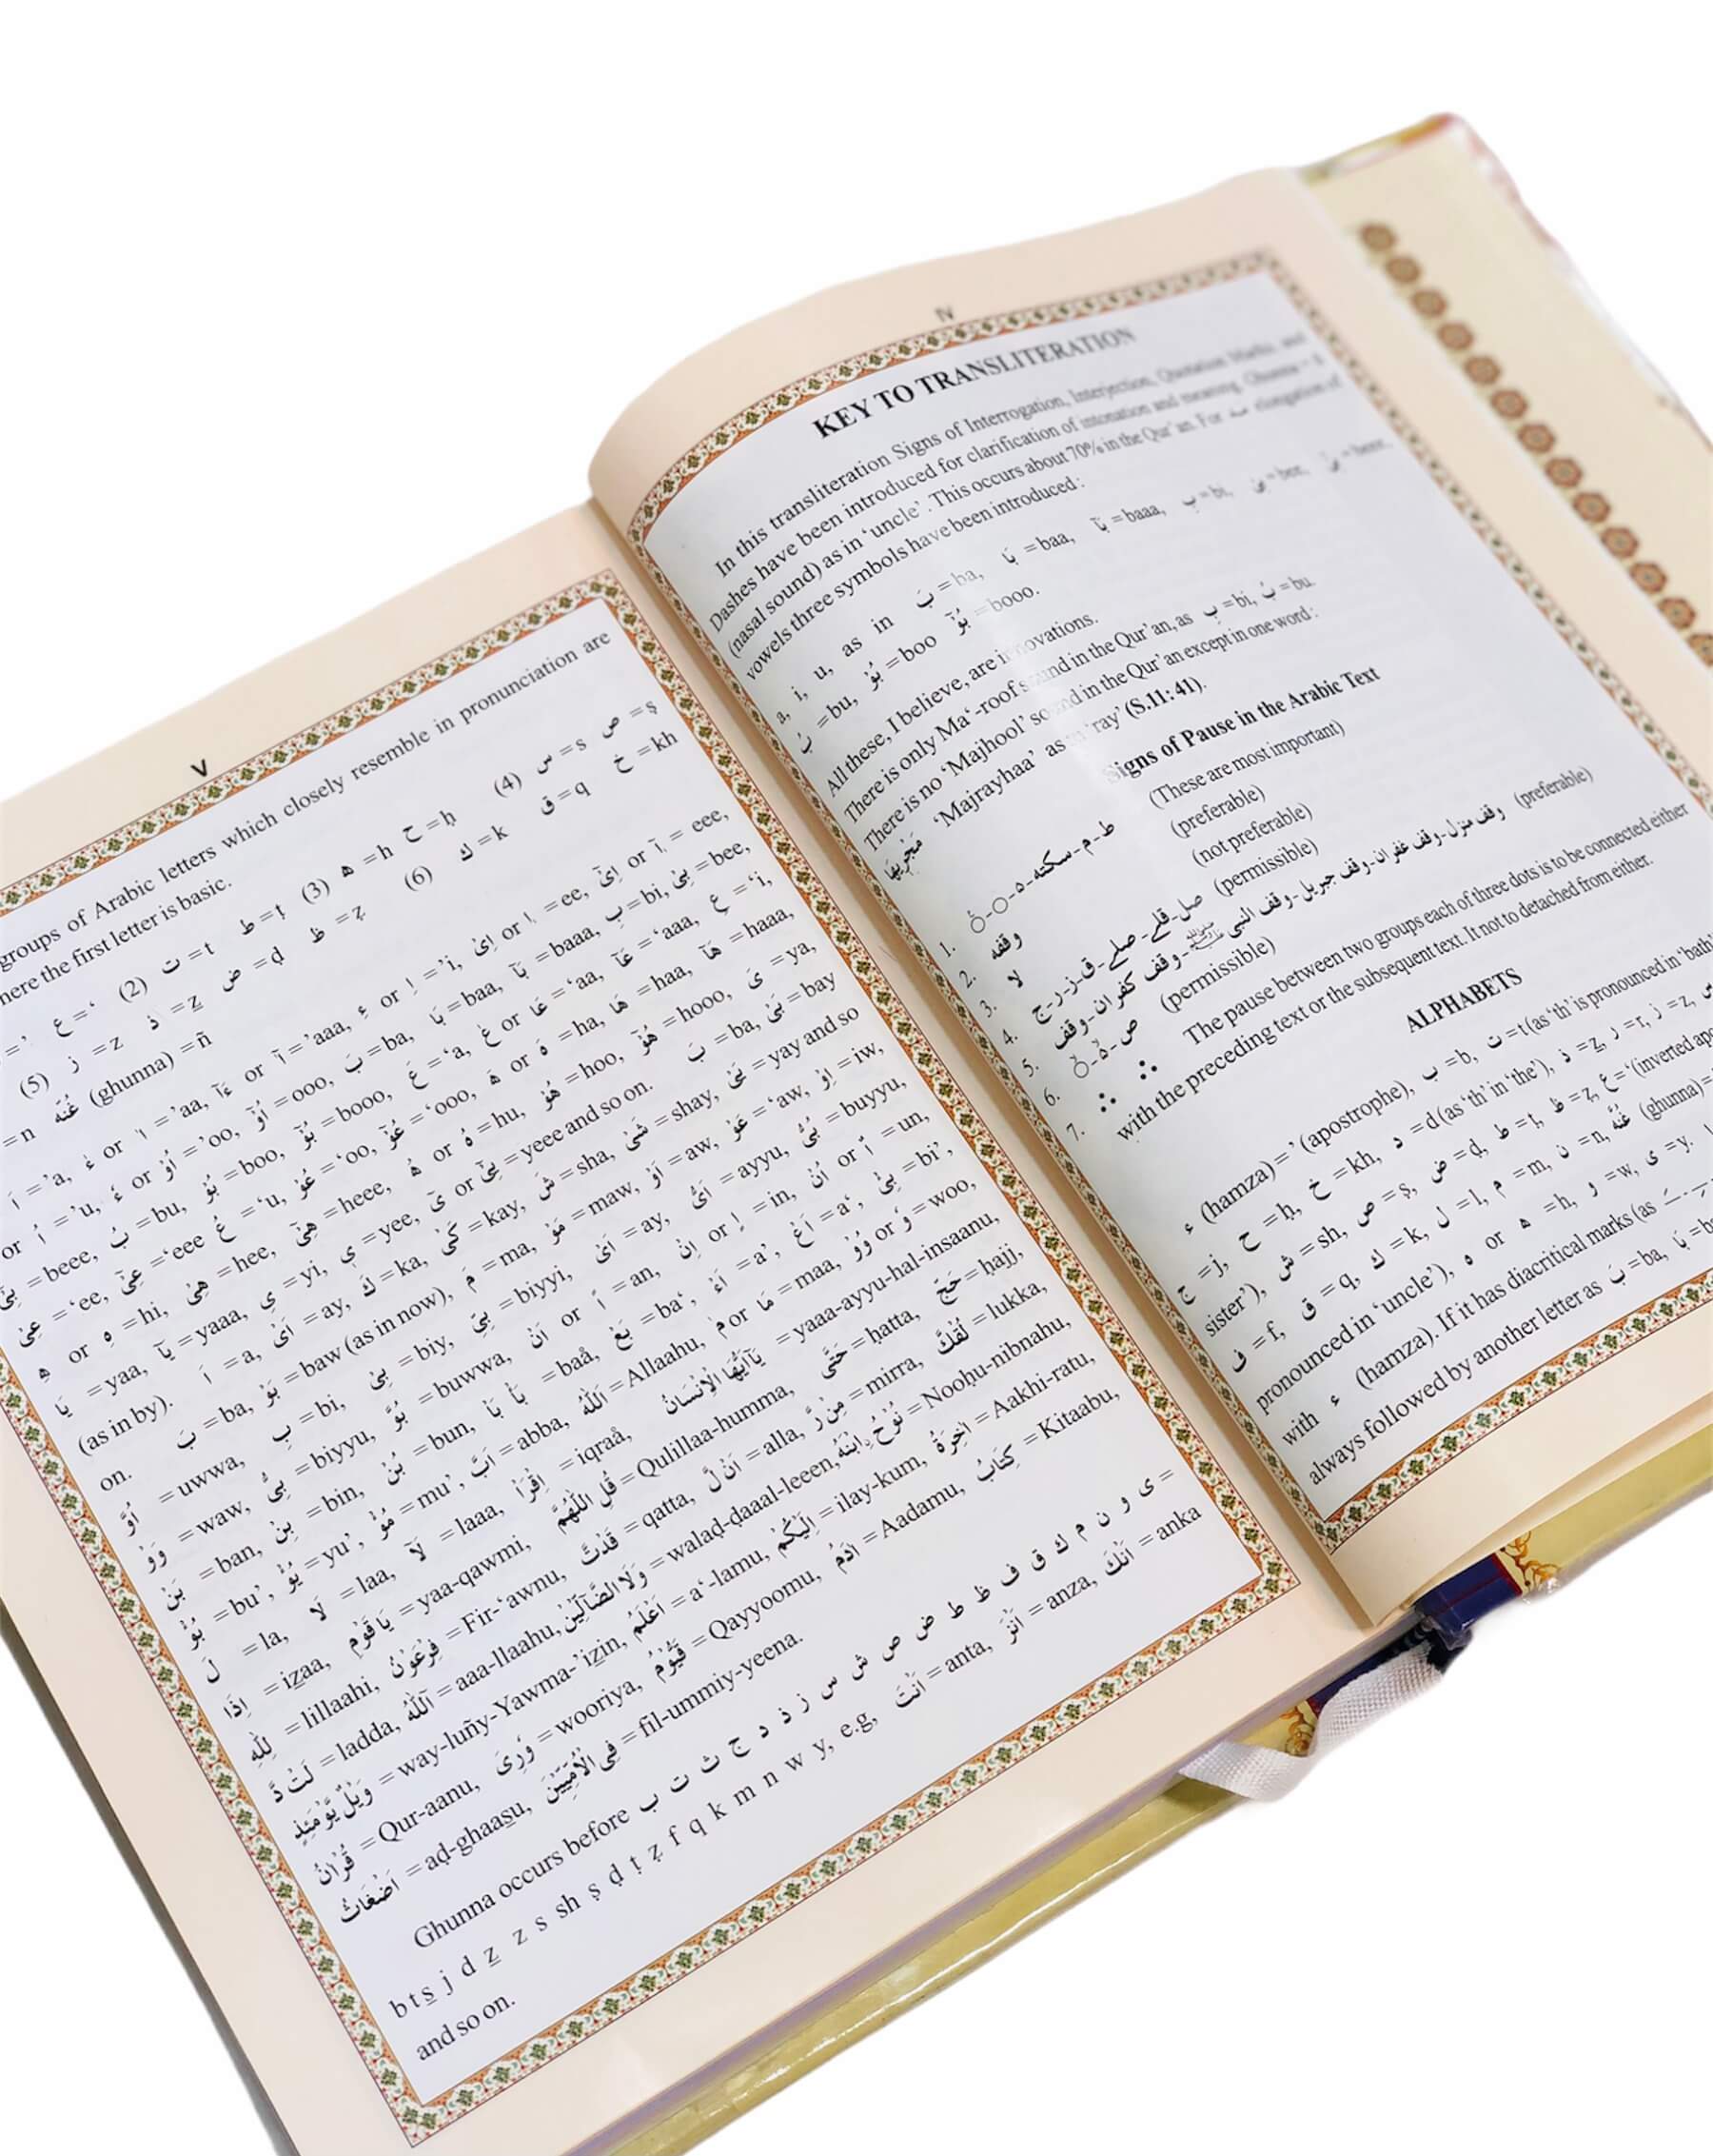 IV
KEY TO TRANSLITERATION
In this transliteration Signs of Interrogation, Interjection, Quotation Marks and
Dashes have been introduced for clarification of intonation and meaning. Ghunna = ñ
(nasal sound) as in ‘uncle’. This occurs about 70% in the Qur’an. For مد elongation of
vowels three symbols have been introduced :
a, i, u, as in بَ = ba, بَا = baa, بَآ = baaa, بِ = bi,
بُ = bu, بُوْ = boo بُوْٓ = booo.
All these, I believe, are innovations.
There is only Ma‘-roof sound in the Qur’an, as بِ = bi, بُ = bu.
There is no ‘Majhool’ sound in the Qur’an except in one word :
‘Majrayhaa’ as in ‘ray’ (S.11:41).
Signs of Pause in the Arabic Text
1. ط - م - سكته - ه (These are most important)
2. وقفه (preferable)
3. لا (not preferable)
4. صل - قلے - صلے - ق - ز - ر - ج (permissible)
5. وقف كفران - وقف النبى ﷺ - وقف جبريل - وقف غفران - وقف منزل (preferable)
6. ص (permissible)
7. ∴ ∴ The pause between two groups each of three dots is to be connected either
with the preceding text or the subsequent text. It not to detached from either.
ALPHABETS
ء (hamza) = ’ (apostrophe), ب = b, ت = t (as ‘th’ is pronounced in
ج = j, ح = ḥ, خ = kh, د = d (as ‘th’ in ‘the’), ذ = ẕ, ر = r, ز = z,
sister’), ش = sh, ص = ṣ, ض = ḍ, ط = ṭ, ظ = ẓ, ع = ‘ (inverted
ف = f, ق = q, ك = k, ل = l, م = m, ن = n, غُنّه (ghunna) =
pronounced in ‘uncle’), ه or ھ = h, و = w, ى = y.
with ء (hamza). If it has diacritical marks (as
always followed by another letter as بَ = ba, بَا =
V
groups of Arabic letters which closely resemble in pronunciation are
the first letter is basic.
= ’ ع = ‘ (2) ت = t ط = ṭ (3) ھ = h ح = ḥ (4) س = s ص = ṣ
(5) ز = z ذ = ẕ ض = ḍ ظ = ẓ (6) ك = k ق = q خ = kh
= n غُنّه (ghunna) = ñ
= ’a, = ’aa, or آ = ’aaa, ء or اِ = ’i, اِىْ or = ee, or = eee,
or اُ = ’u, or اُوْ = ’oo, اُوْٓ = ooo, بَ = ba, بَا = baa, بَآ = baaa, بِ = bi, بِىْ = bee,
بِىْٓ = beee, بُ = bu, بُوْ = boo, بُوْٓ = booo, عَ = ‘a, or عَا = ‘aa, عَآ = ‘aaa, عِ = ‘i,
عِىْ = ‘ee, عِىْٓ = ‘eee عُ = ‘u, عُوْ = ‘oo, عُوْٓ = ‘ooo, ھ or هَ = ha, هَا = haa, هَآ = haaa,
ھ or هِ = hi, هِىْ = hee, هِىْٓ = heee, or هُ = hu, هُوْ = hoo, هُوْٓ = hooo, ىَ = ya,
يَا = yaa, يَآ = yaaa, ىِ = yi, = yee, or = yeee and so on. بَ = ba, بَىْ = bay
(as in by). اَ = a, اَىْ = ay, كَ = ka, كَىْ = kay, شَ = sha, شَىْ = shay, يَىْ = yay and so
on. بَ = ba, بَوْ = baw (as in now), مَ = ma, مَوْ = maw, اَوْ = aw, عَوْ = ‘aw, اِوْ = iw,
اُوَّ = uwwa, بِ = bi, بِىْ = biy, بِىِّ = biyyi, اَىْ = ay, اَىُّ = ayyu, بُىُّ = buyyu,
وَوْ = waw, بِىُّ = biyyu, بُوَّ = buwwa, اَنْ or اً = an, اِنْ or اٍ = in, اُنْ or اٌ = un,
بَنْ = ban, بِنْ = bin, بُنْ = bun, بَا بَأْ = baå, بَعْ = ba‘, اَءْ = a’, اَعْ = a‘, بِىْٔ = bi’,
بُؤْ = bu’, يُؤْ = yu’, مُؤْ = mu’, اَبَّ = abba, اَللّٰهُ = Allaahu, or مَا = maa, وُوْ or = woo,
لَ = la, لَا = laa, لَآ = laaa, اِقْرَاْ = iqraå, يٰٓاَيُّهَا الْاِنْسَانُ = yaaa-ayyu-hal-insaanu,
اِذَا = iẕaa, يَا قَوْمِ = yaa-qawmi, قُلِ اللّٰهُمَّ = Qulillaa-humma, حَتّٰى = ḥatta, حَجّ = ḥajj,
لِلّٰهِ = lillaahi, فِرْعَوْنُ = Fir-‘awnu, قَدْتَّ = qatta, اَنْ لَّ = alla, مِنْ رَّ = mirra, لَقْكَّ = lukka,
لَتْ دَّ = ladda, آللّٰهُ = aaa-llaahu, وَلَا الضَّآلِّيْنَ = walaḍ-ḍaaal-leeen, نُوْحُ ۨابْنَهٗ = Nooḥu-nibnahu,
وَيْلٌ يَّوْمَئِذٍ = way-luñy-Yawma-’iẕin, اَعْلَمُ = a‘-lamu, اِلَيْكُمْ = ilay-kum, اٰخِرَةُ = Aakhi-ratu,
قُرْاٰنُ = Qur-aanu, وٗرِىَ = wooriya, قَيُّوْمُ = Qayyoomu, اٰدَمُ = Aadamu, كِتَابُ = Kitaabu,
اَضْغَاثُ = aḍ-ghaas̱u, فِى الْاُمِّيّٖنَ = fil-ummiy-yeena.
Ghunna occurs before ب ت ث ج د ذ ز س ش ص ض ط ظ ف ق ك م ن و ى =
b t s̱ j d ẕ z s sh ṣ ḍ ṭ ẓ f q k m n w y, e.g, اَنْتَ = anta, اَنْزَ = anza, اَنْكَ = anka
and so on.